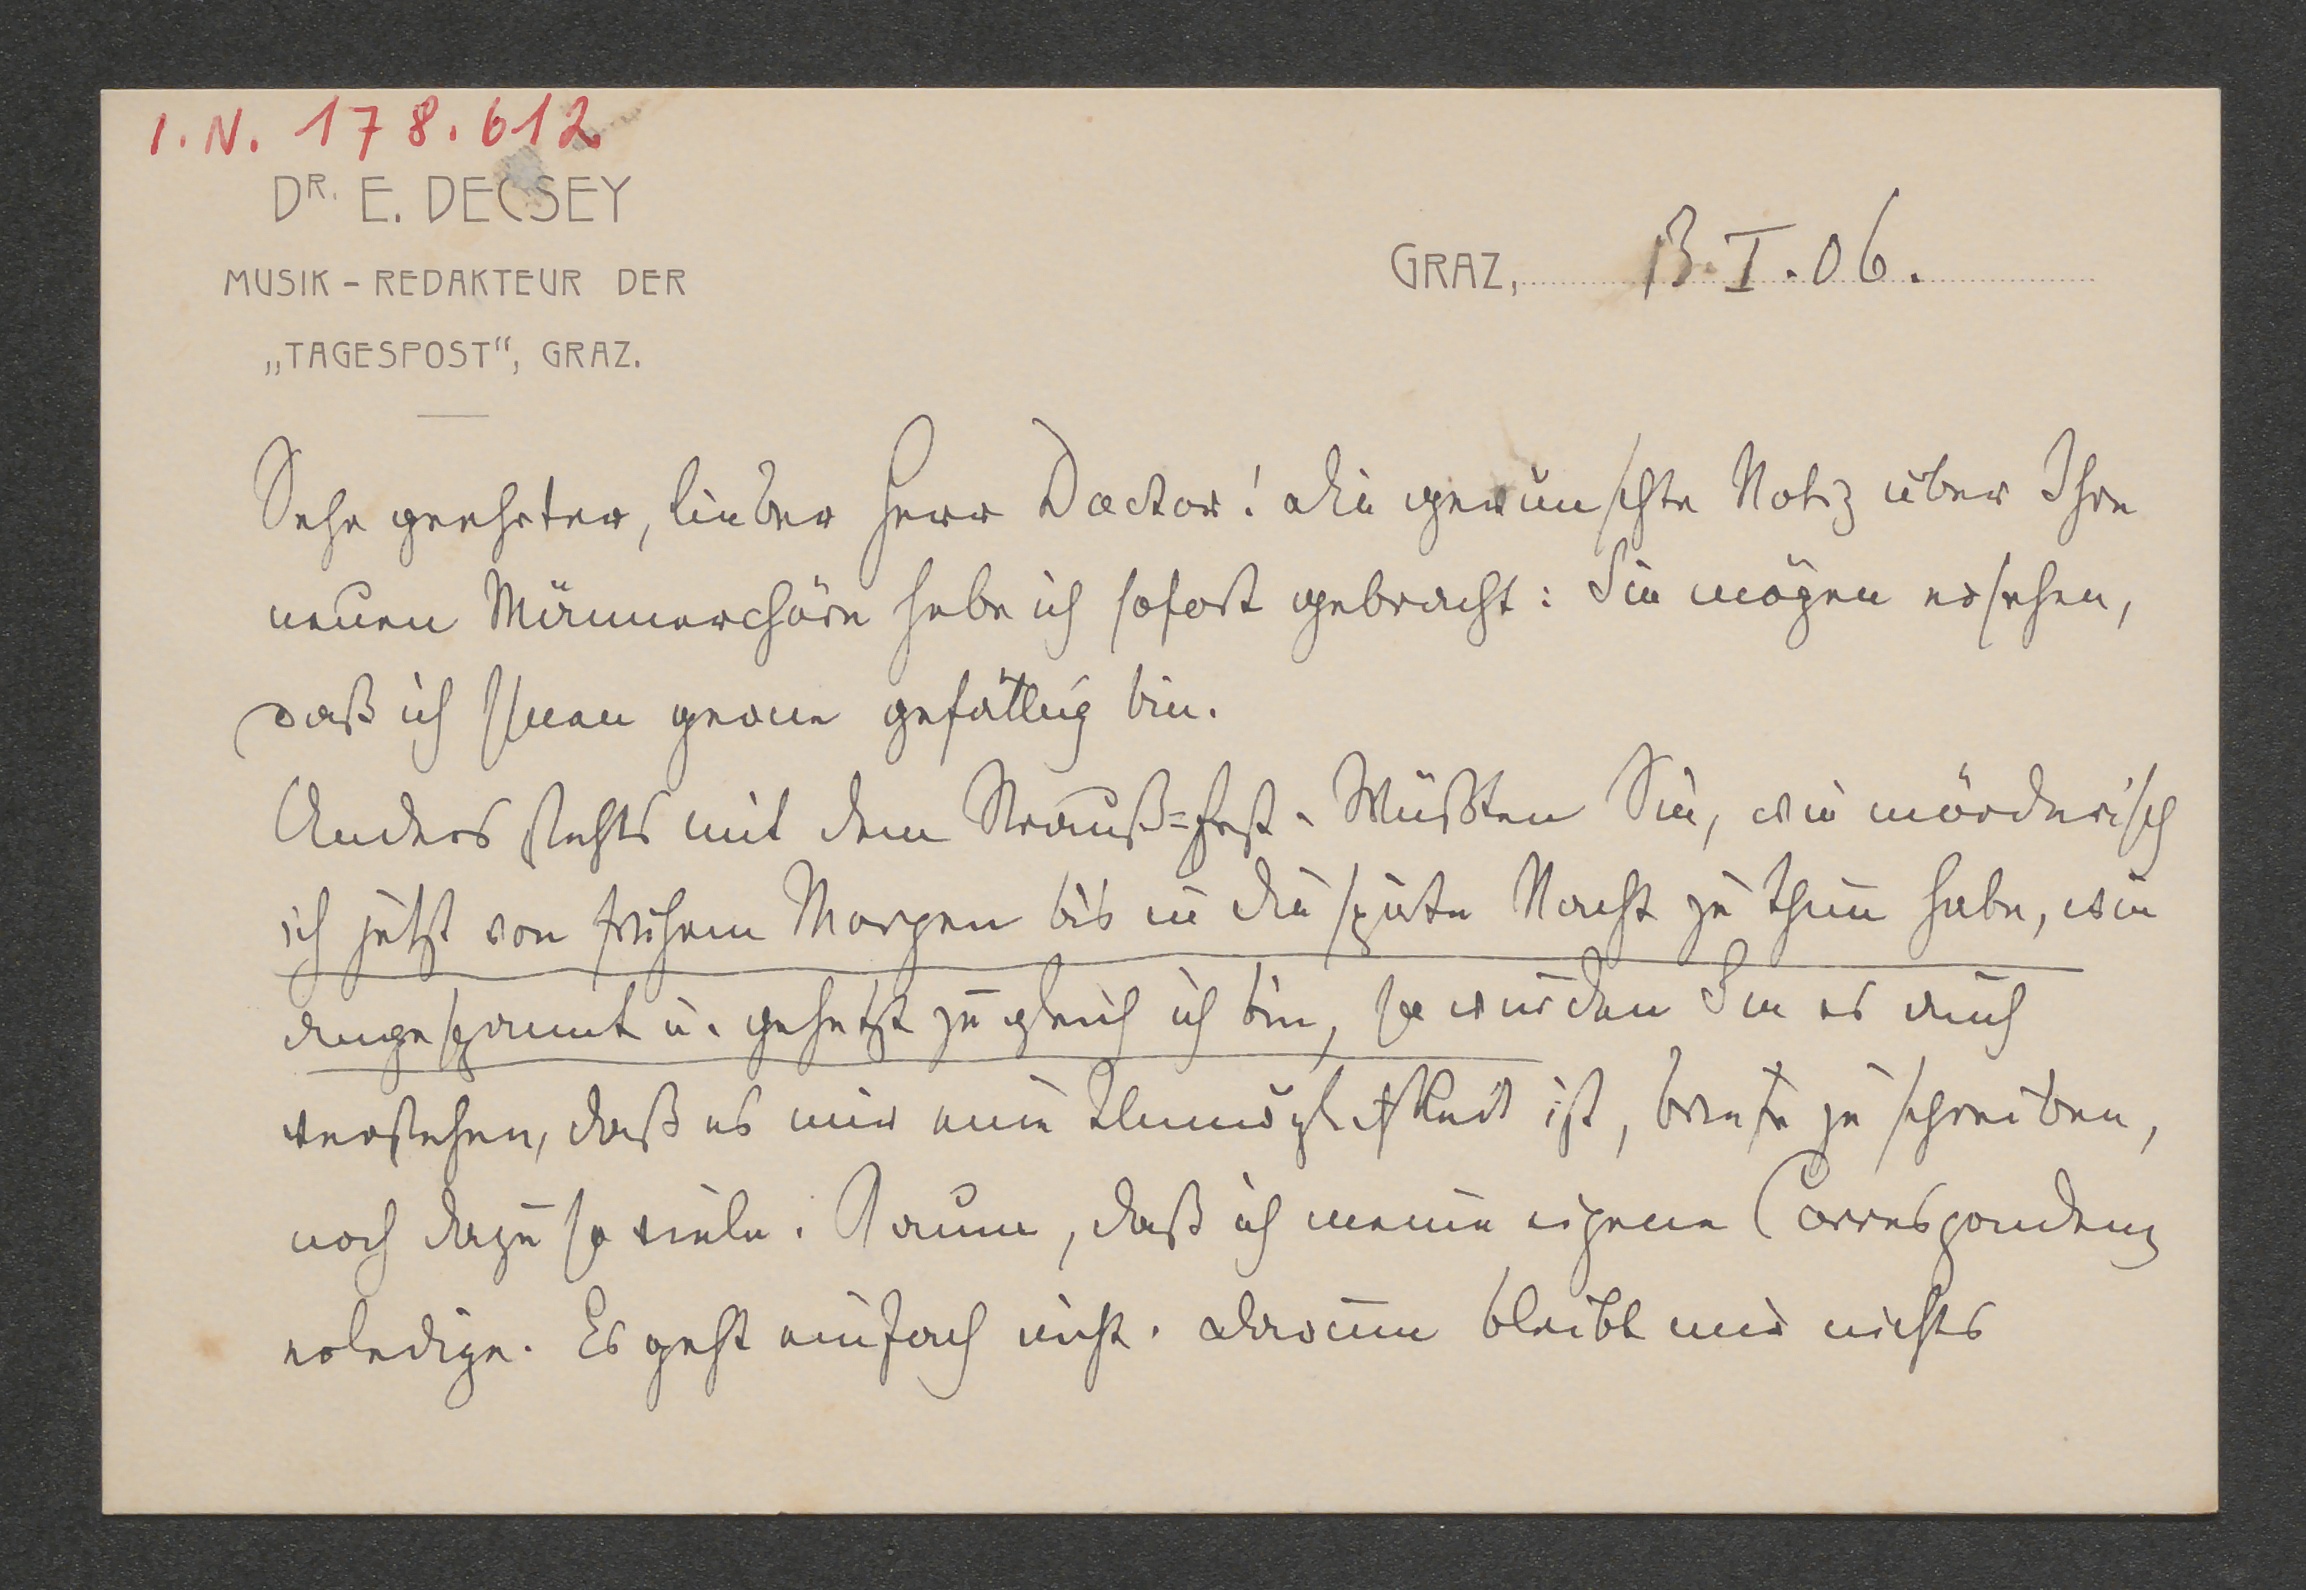 I.N. 178.612
DR. E. DECSEY
MUSIK - REDAKTEUR DER
„TAGESPOST“, GRAZ.
GRAZ, 13. I. 06.
Sehr geehrter, lieber Herr Doctor! Die gewünschte Notiz über Ihre
neuen Männerchöre habe ich sofort gebracht: Sie mögen ersehen,
daß ich Ihnen gerne gefällig bin.
Anders stehts mit dem Strauß=Fest. Wüßten Sie, wie mörderisch
ich jetzt von frühem Morgen bis in die späte Nacht zu thun habe, wie
angespannt u. gehetzt zugleich ich bin, so würden Sie es auch
verstehen, daß es mir eine Unmöglichkeit ist, Briefe zu schreiben,
noch dazu so viele. Kaum, daß ich meine eigene Correspondenz
erledige. Es geht einfach nicht. Darum bleibt mir nichts